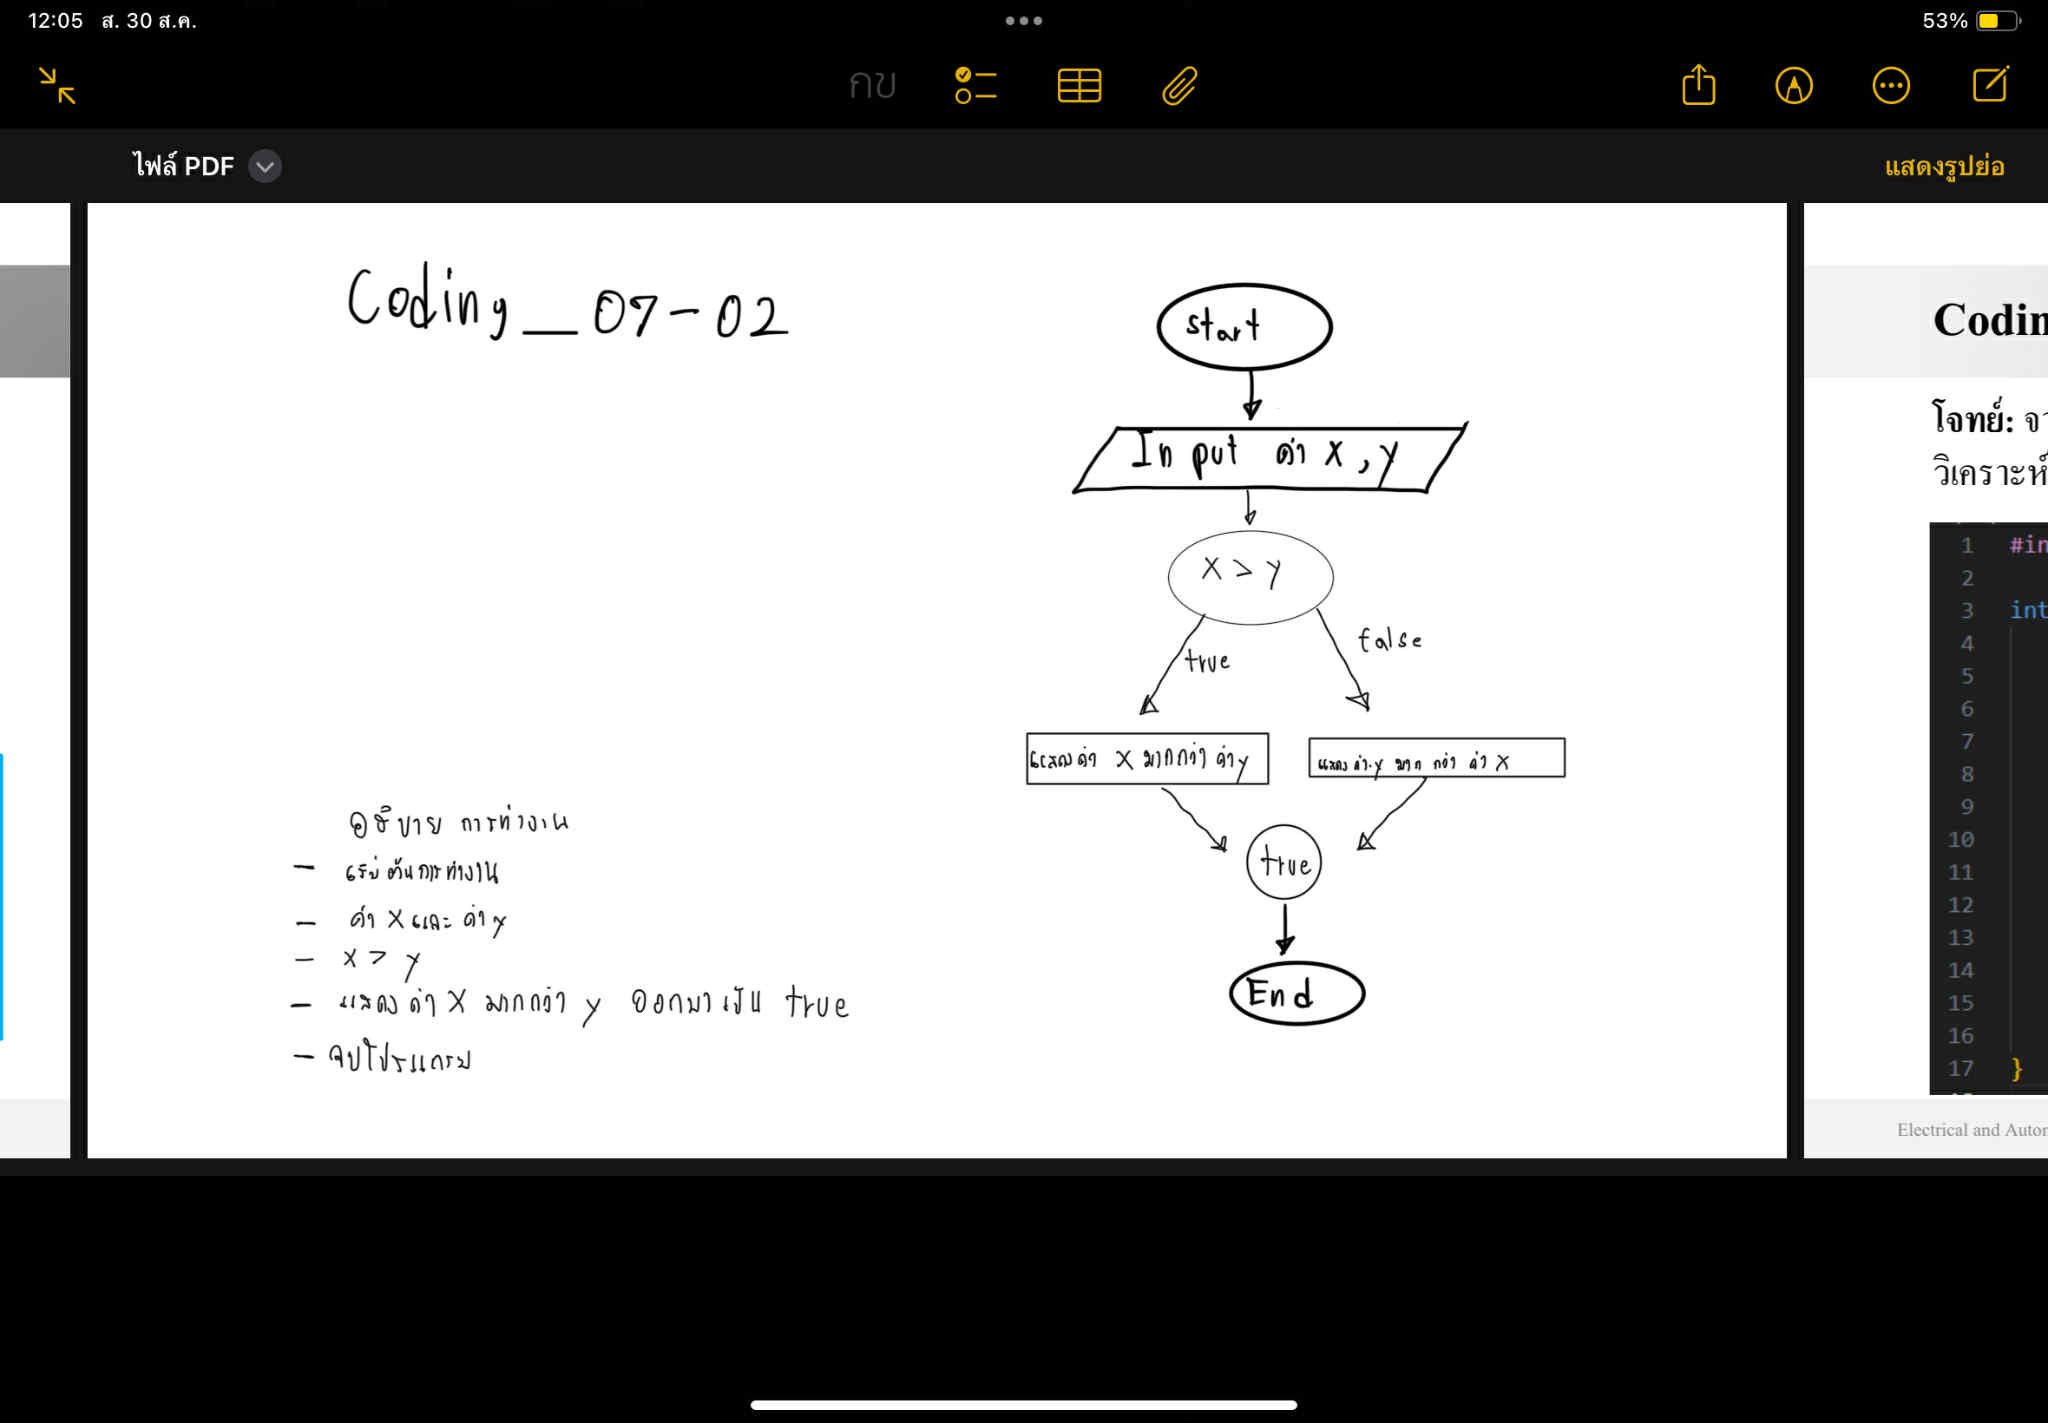 12:05 ส. 30 ส.ค.
53%
กข
ไฟล์ PDF
แสดงรูปย่อ
Coding_07-02
start
Input ค่า x, y
x > y
true
false
แสดงค่า x มากกว่า ค่า y
แสดง ค่า y มาก กว่า ค่า x
true
End
อธิบาย การทำงาน
- เริ่มต้นการทำงาน
- ค่า x และ ค่า y
- x > y
- แสดง ค่า x มากกว่า y ออกมาเป็น true
- จบโปรแกรม
Codin
โจทย์: จา
วิเคราะห์
1 #in
2
3 int
4
5
6
7
8
9
10
11
12
13
14
15
16
17 }
Electrical and Autor